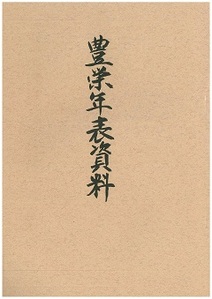 豊栄年表資料